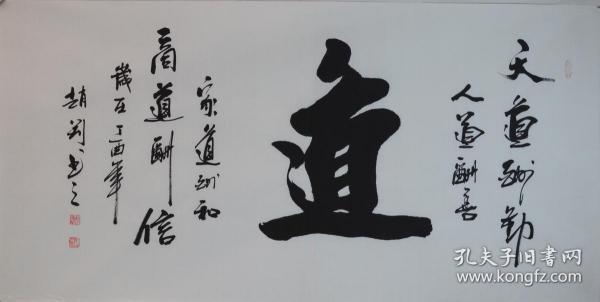 天道酬勤
人道酬善
道
家道酬和
商道酬信
歲在丁酉年
趙剛書之
孔夫子旧书网
www.kongfz.com